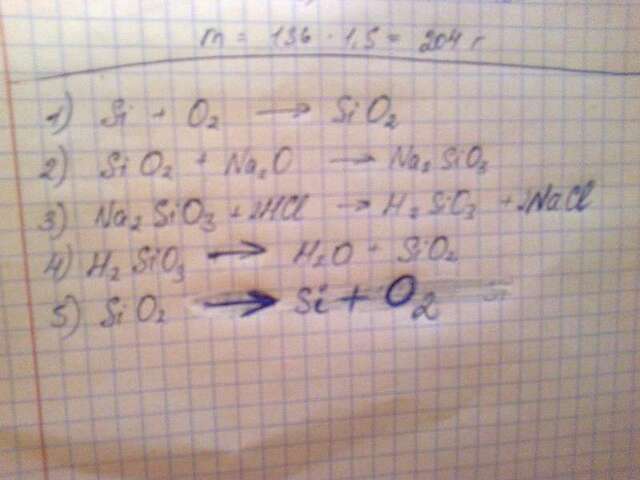 m = 136 · 1,5 = 204 г
1) Si + O₂ → SiO₂
2) SiO₂ + Na₂O → Na₂SiO₃
3) Na₂SiO₃ + 2HCl → H₂SiO₃ + 2NaCl
4) H₂SiO₃ → H₂O + SiO₂
5) SiO₂ → Si + O₂